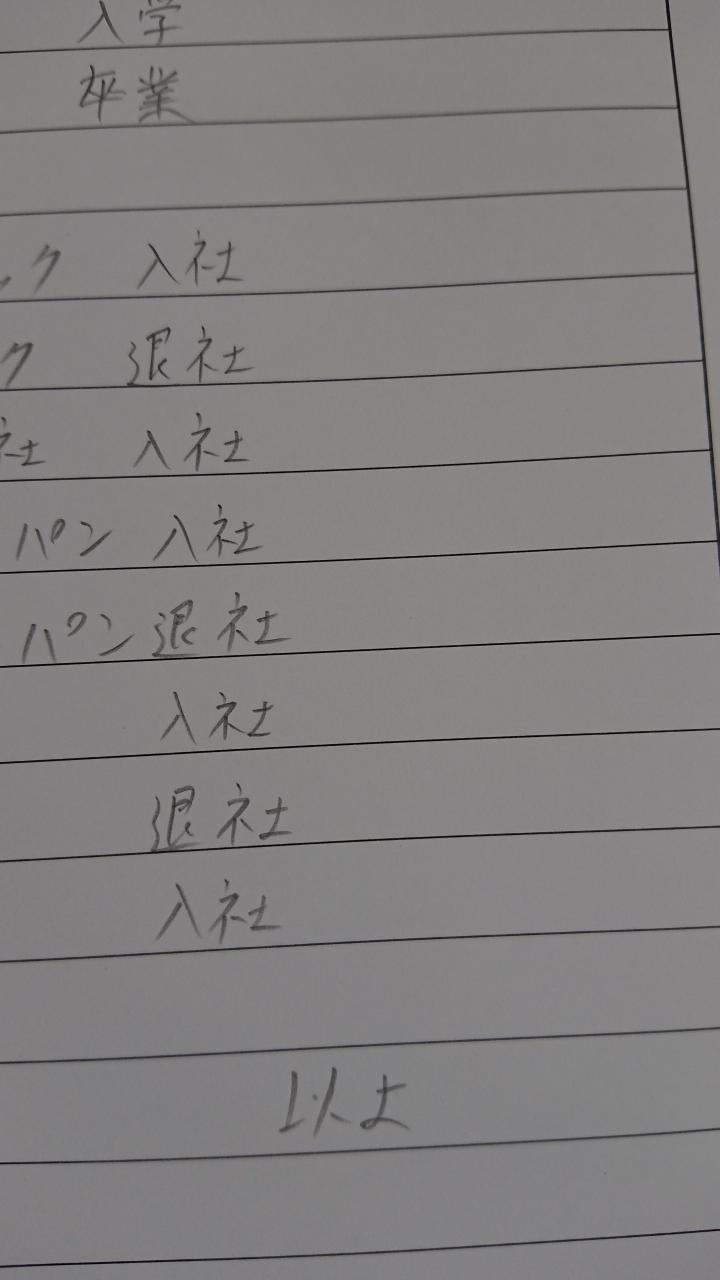 入学
卒業
ック 入社
ク 退社
社 入社
パン 入社
パン退社
入社
退社
入社
以上